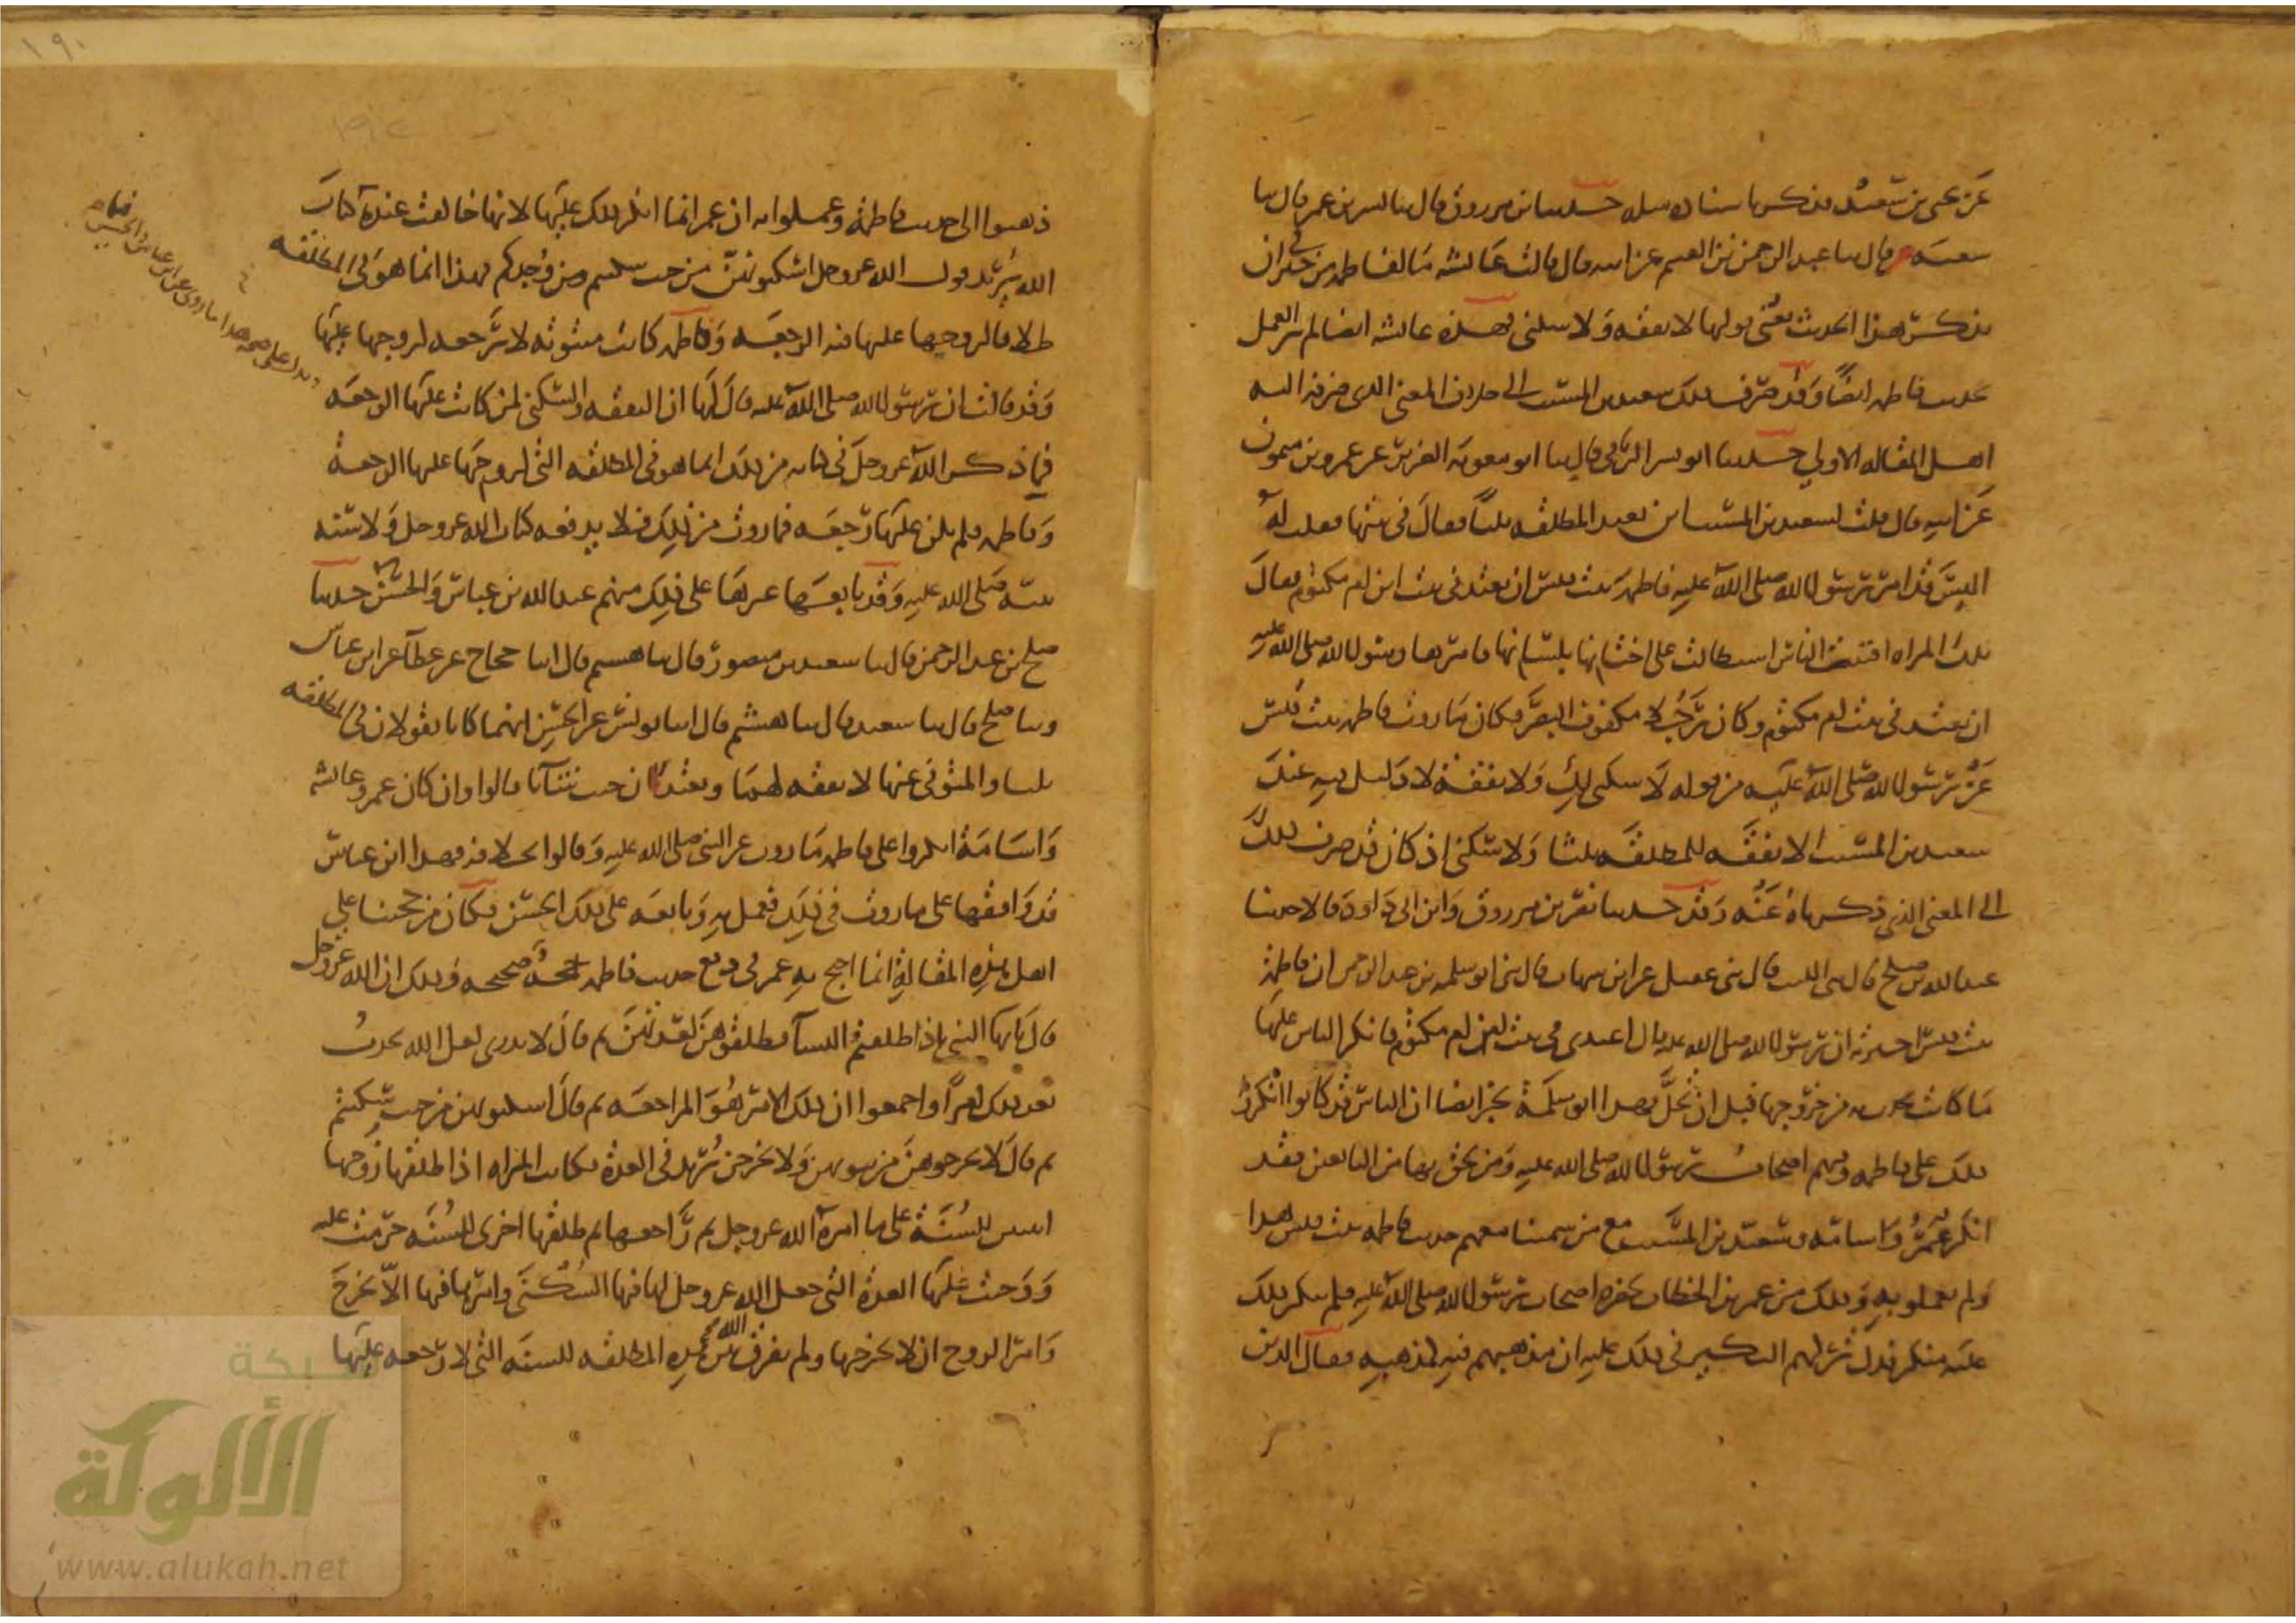 عن يحيى بن سعيد فذكر باسناده مثله حدثنا ابن مرزوق قال ثنا بشر بن عمر قال ثنا
شعبة قال ثنا عبد الرحمن بن القسم عن ابيه قال قالت عائشة ما لفاطمة من خير في ان
تذكر هذا الحديث يعني قولها لا نفقة ولا سكنى فهذه عائشة ايضا لم تر العمل
بحديث فاطمة ايضا وقد صرف ذلك سعيد بن المسيب الى خلاف المعنى الذي صرفه اليه
اهل المقالة الاولى حدثنا ابو بشر الرقي قال ثنا ابو معوية الضرير عن عمرو بن ميمون
عن ابيه قال قلت لسعيد بن المسيب اين تعتد المطلقة ثلثا فقال في بيتها فقلت له
اليس قد امر رسول الله صلى الله عليه فاطمة بنت قيس ان تعتد في بيت ابن ام مكتوم فقال
تلك المراه افتنت الناس استطالت على احمائها بلسانها فامرها رسول الله صلى الله عليه
ان تعتد في بيت ابن ام مكتوم وكان رجلا مكفوف البصر فكان ما روت فاطمة بنت قيس
عن رسول الله صلى الله عليه من قوله لا سكنى لك ولا نفقة لا دليل فيه عند
سعيد بن المسيب الا نفقة للمطلقة ثلثا ولا سكنى اذ كان قد صرف ذلك
الى المعنى الذي ذكرناه عنه وقد حدثنا نصر بن مرزوق وابن ابي داود قالا حدثنا
عبد الله بن صلح قال ثني الليث قال ثني عقيل عن ابن شهاب قال ثني ابو سلمة بن عبد الرحمن ان فاطمة
بنت قيس اخبرته ان رسول الله صلى الله عليه قال اعتدي في بيت ابن ام مكتوم فانكر الناس عليها
ما كانت تحدث به من خروجها قبل ان تحل فهذا ابو سلمة يخبر ايضا ان الناس قد كانوا انكروا
ذلك على فاطمة وفيهم اصحاب رسول الله صلى الله عليه ومن لحق بهم من التابعين فقد
انكر عمر واسامة وسعيد بن المسيب مع من سمينا معهم حديث فاطمة بنت قيس هذا
ولم يعملوا به وذلك من عمر بن الخطاب بحضرة اصحاب رسول الله صلى الله عليه فلم ينكر ذلك
عليه منكر فدل تركهم النكير في ذلك عليه ان مذهبهم فيه كمذهبه فقال الذين
ذهبوا الى حديث فاطمة وعملوا به ان عمر انما انكر ذلك عليها لانها خالفت عنده كتاب
الله يريد قول الله عز وجل اسكنوهن من حيث سكنتم من وجدكم فهذا انما هو في المطلقة
طلاقا لزوجها عليها فيه الرجعة وفاطمة كانت مبتوتة لا رجعة لزوجها عليها
وقد قالت ان رسول الله صلى الله عليه قال لها ان النفقة والسكنى لمن كانت عليها الرجعة
فما ذكر الله عز وجل في كتابه من ذلك انما هو في المطلقة التي لزوجها عليها الرجعة
وفاطمة فلم يكن عليها رجعة فما روت من ذلك فلا يدفعه كتاب الله عز وجل ولا سنة
نبيه صلى الله عليه وقد تابعها غيرها على ذلك منهم عبد الله بن عباس والحسن حدثنا
صلح بن عبد الرحمن قال ثنا سعيد بن منصور قال ثنا هشيم قال انا حجاج عن عطآ عن ابن عباس
وثنا صلح قال ثنا سعيد قال ثنا هشيم قال انا يونس عن الحسن انهما كانا يقولان في المطلقة
ثلثا والمتوفى عنها لا نفقة لهما وتعتدان حيث شآتا قالوا وان كان عمر وعائشة
واسامة انكروا على فاطمة ما روت عن النبي صلى الله عليه وقالوا بخلافه فهذا ابن عباس
قد وافقها على ما روت في ذلك فعمل به وتابعه على ذلك الحسن فكان من حجتنا على
اهل هذه المقالة انما احتج به عمر في دفع حديث فاطمة حجة صحيحة وذلك ان الله عز وجل
قال يا ايها النبي اذا طلقتم النسآ فطلقوهن لعدتهن ثم قال لا تدري لعل الله يحدث
بعد ذلك امرا واجمعوا ان ذلك الامر هو المراجعة ثم قال اسكنوهن من حيث سكنتم
ثم قال لا تخرجوهن من بيوتهن ولا يخرجن يريد في العدة فكانت المراه اذا طلقها زوجها
اثنتين للسنة على ما امره الله عز وجل ثم راجعها ثم طلقها اخرى للسنة حرمت عليه
ووجبت عليها العدة التي جعل الله عز وجل لها فيها السكنى وامرها فيها الا تخرج
وامر الزوج ان لا يخرجها ولم يفرق الله بين هذه المطلقة للسنة التي لا رجعة عليها
ويدل على صحة هذا ما روي عن ابن عباس والحسن
١٩٠
شبكة
الألوكة
www.alukah.net